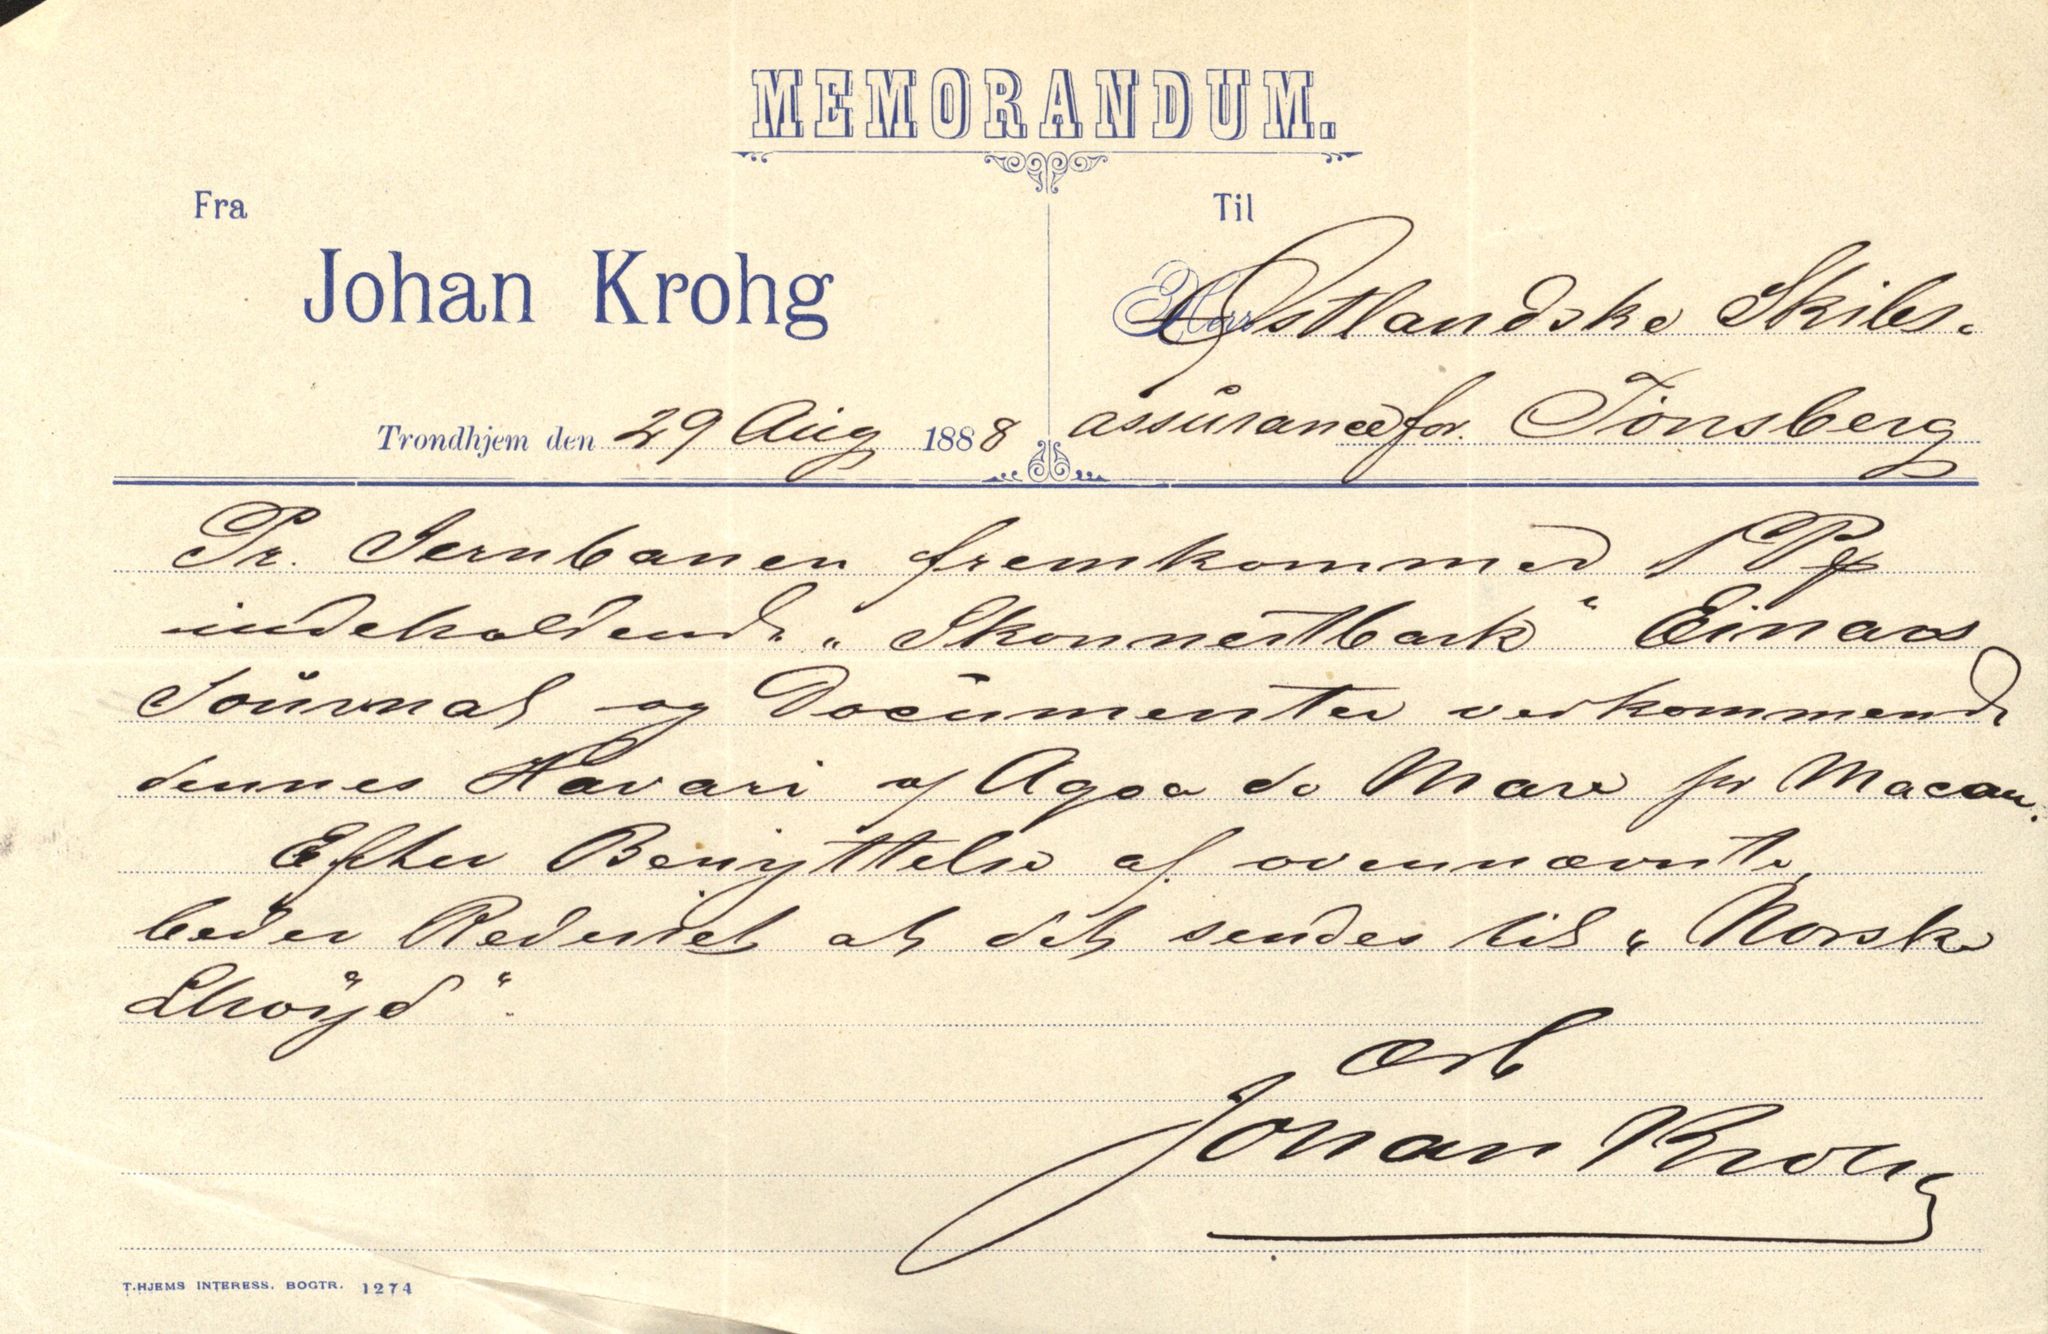 MEMORANDUM.
Fra
Til
Johan Krohg
Herr Østlandske Skibs-
Trondhjem den 29 Aug 1888
assurancefor. Tönsberg
Pr. Jernbanen fremkommer 1 P
indeholdende "Skonnertbark" Einars
Journal og Documenter vedkommende
dennes Havari af Agoa de Mare for Macau.
Efter Benyttelse af ovennævnte
beder Rederiet at det sendes til "Norske
Lloyd".
Ærb
Johan Krohg
T.HJEMS INTERESS. BOGTR. 1274